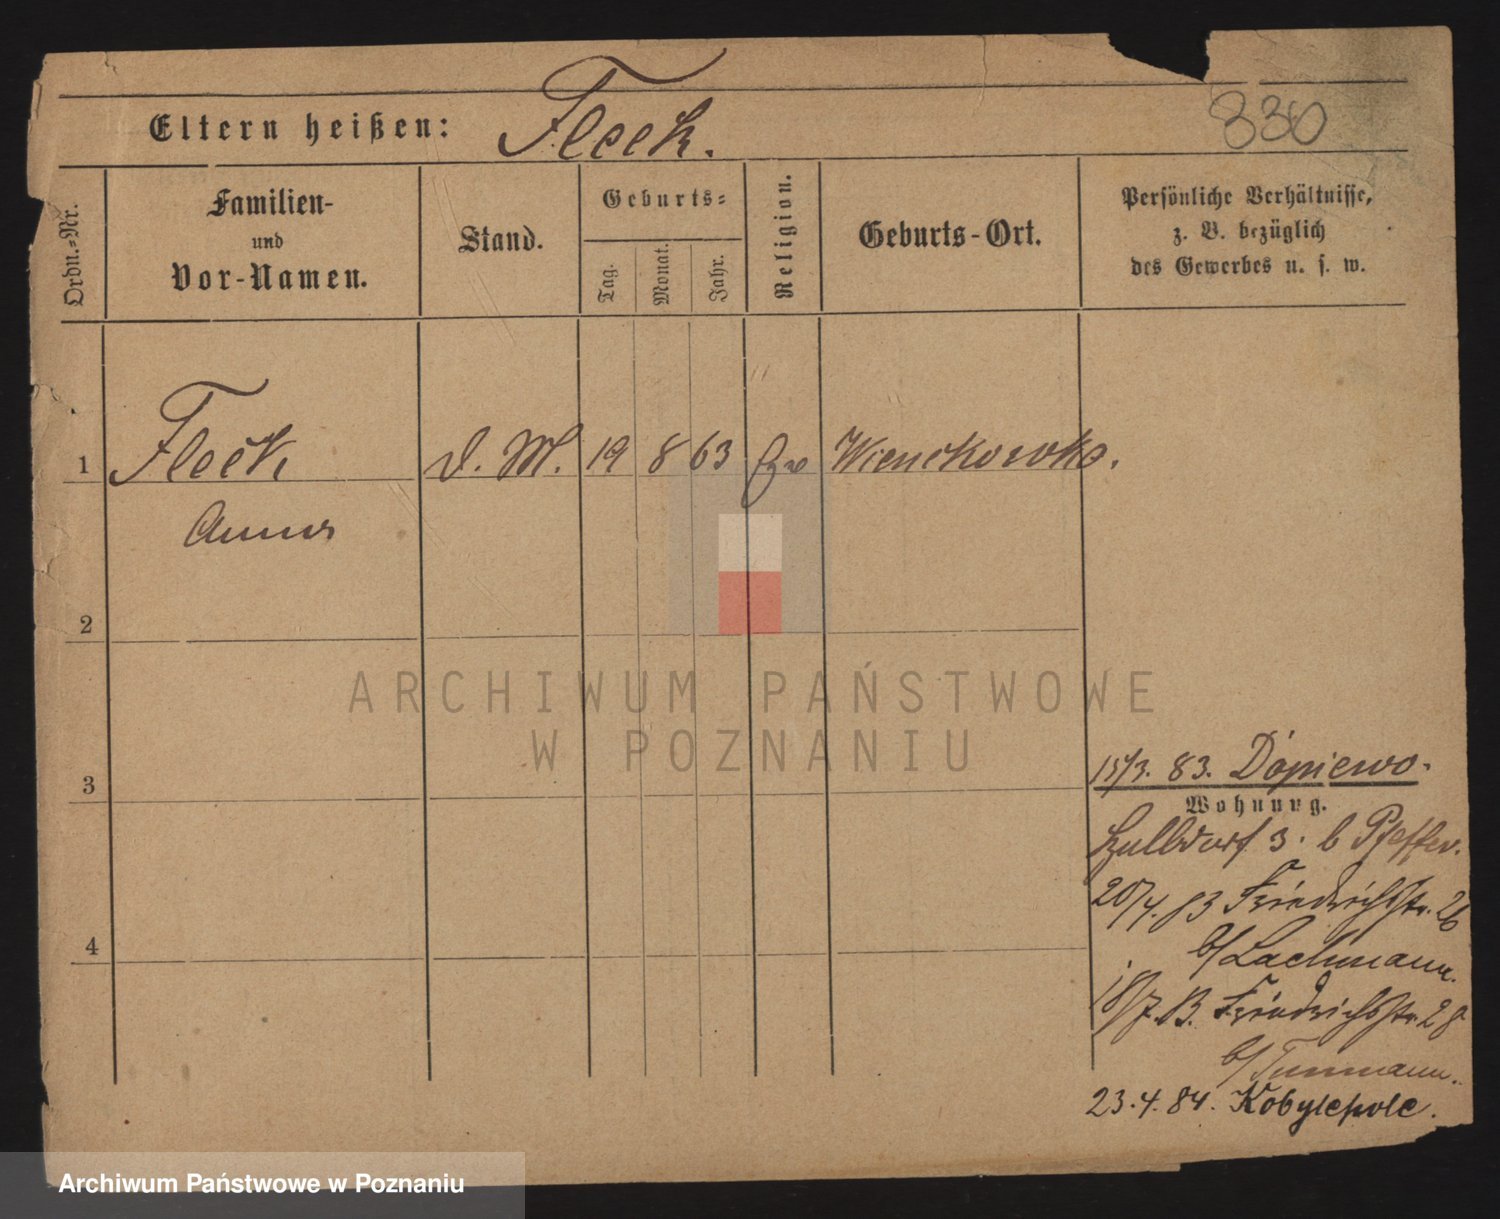 Eltern heißen: Fleck. 330
Ordn.=Nr.
Familien-
und
Vor-Namen.
Stand.
Geburts=
Tag.
Monat.
Jahr.
Religion.
Geburts-Ort.
Persönliche Verhältnisse,
z. B. bezüglich
des Gewerbes u. s. w.
1 Fleck d. M. 19 8 63
Anna
2
3
4
15/3. 83. Dopiewo.
Wohnung.
3. b Pfeffer.
20/4. 83 Friedrichstr. 26
b/ Lachmann.
18/7. 83. Friedrichstr. 28
b/
23.4.84. Kobylepole.
ARCHIWUM PAŃSTWOWE
W POZNANIU
Archiwum Państwowe w Poznaniu